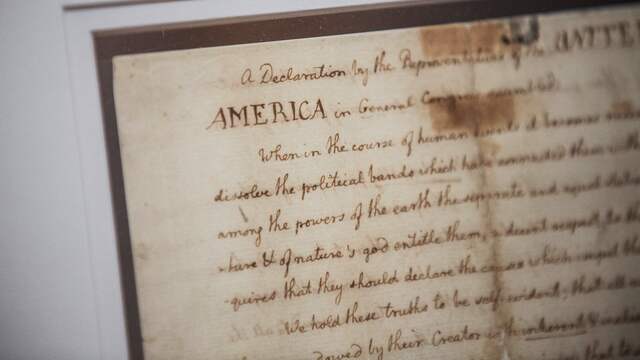 A Declaration by the Representatives of the UNITED
AMERICA in General Congress assembled.
When in the course of human events it becomes
dissolve the political bands which have connected them with
among the powers of the earth the separate and equal
-ture & of nature's god entitle them, a decent respect to the
-quires that they should declare the causes which impel
We hold these truths to be self-evident; that all
-dowed by their Creator with inherent &